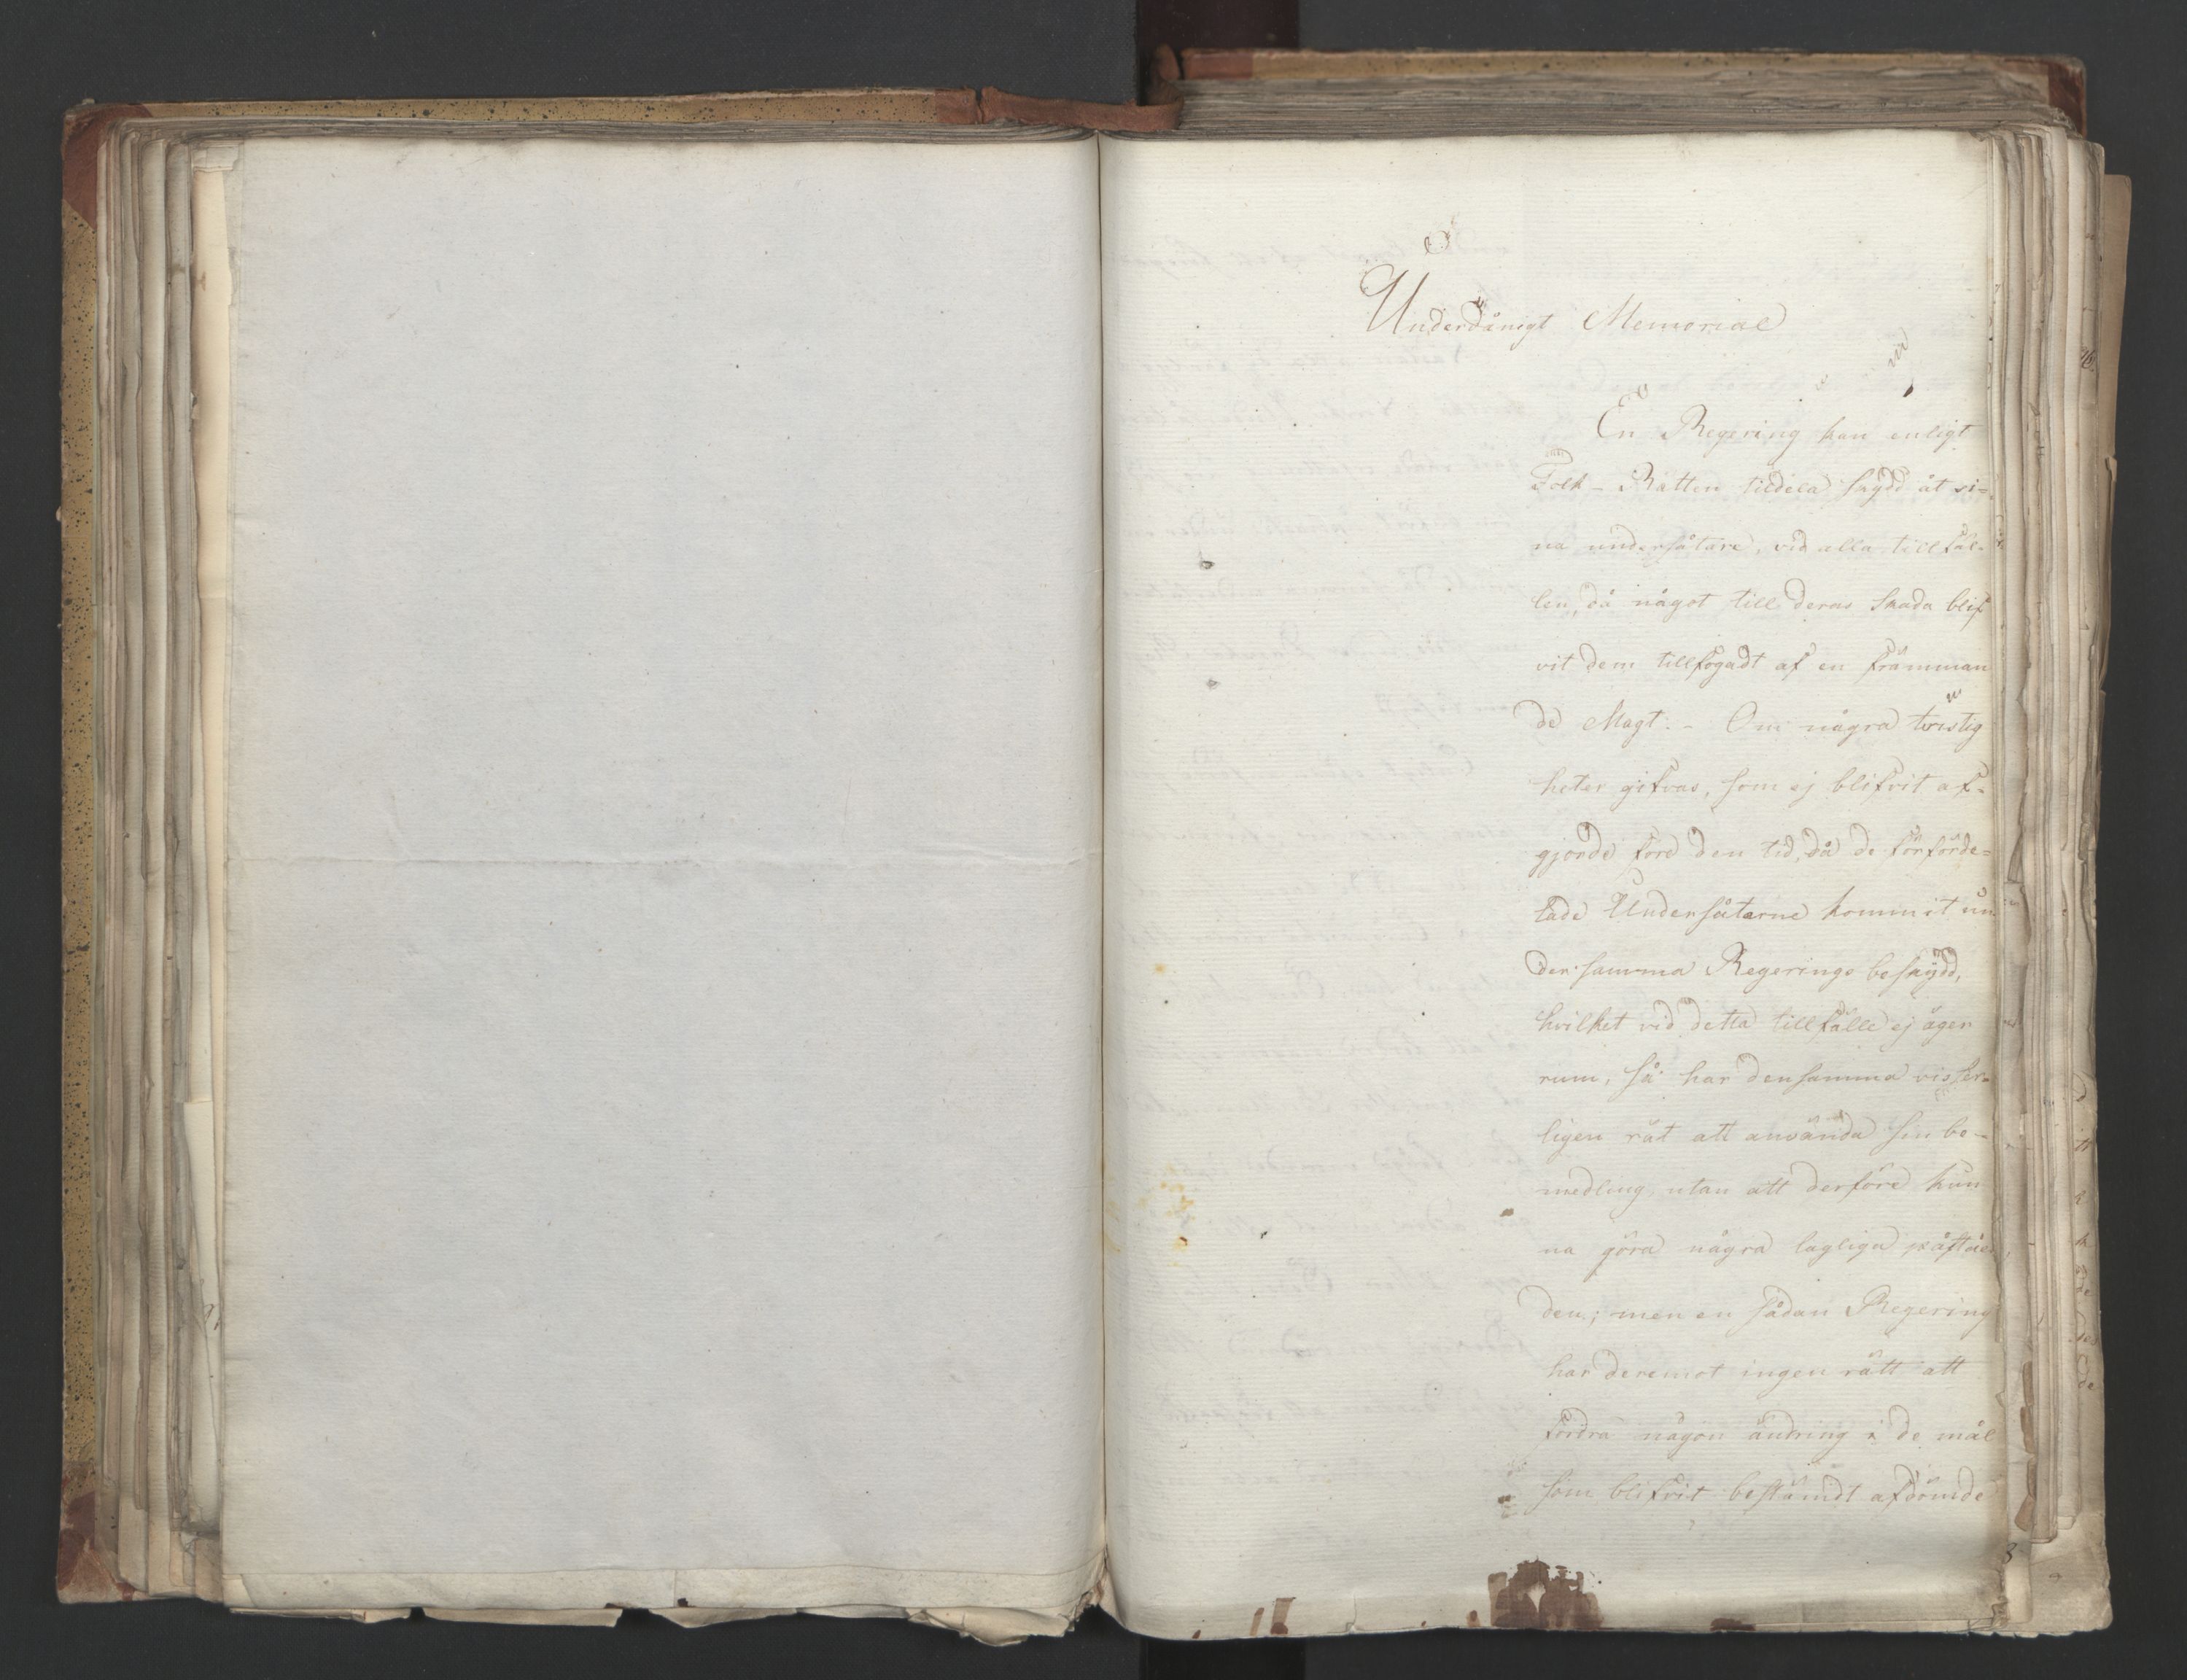 Underdånigt Memorial
En Regering kan enligt
Folk-Rätten tildela skydd åt si=
na undersåtare, vid alla tillfäl-
len, då något till deras skada blif
vit dem tillfogadt af en främman
de Magt. - Om några tvistig
heter gifvas, som ej blifvit af-
gjorde före den tid, då de förförde=
lade Undersåtarne kommit un
der samma Regerings beskydd,
hvilket vid detta tillfälle ej äger
rum, så har densamma visser-
ligen rät att använda sin be-
medling, utan att derföre kun
na göra några lagliga påståen
den; men en sådan Regering
har deremot ingen rätt att
fordra någon ändring i de mål
som blifvit bestämdt afdömde